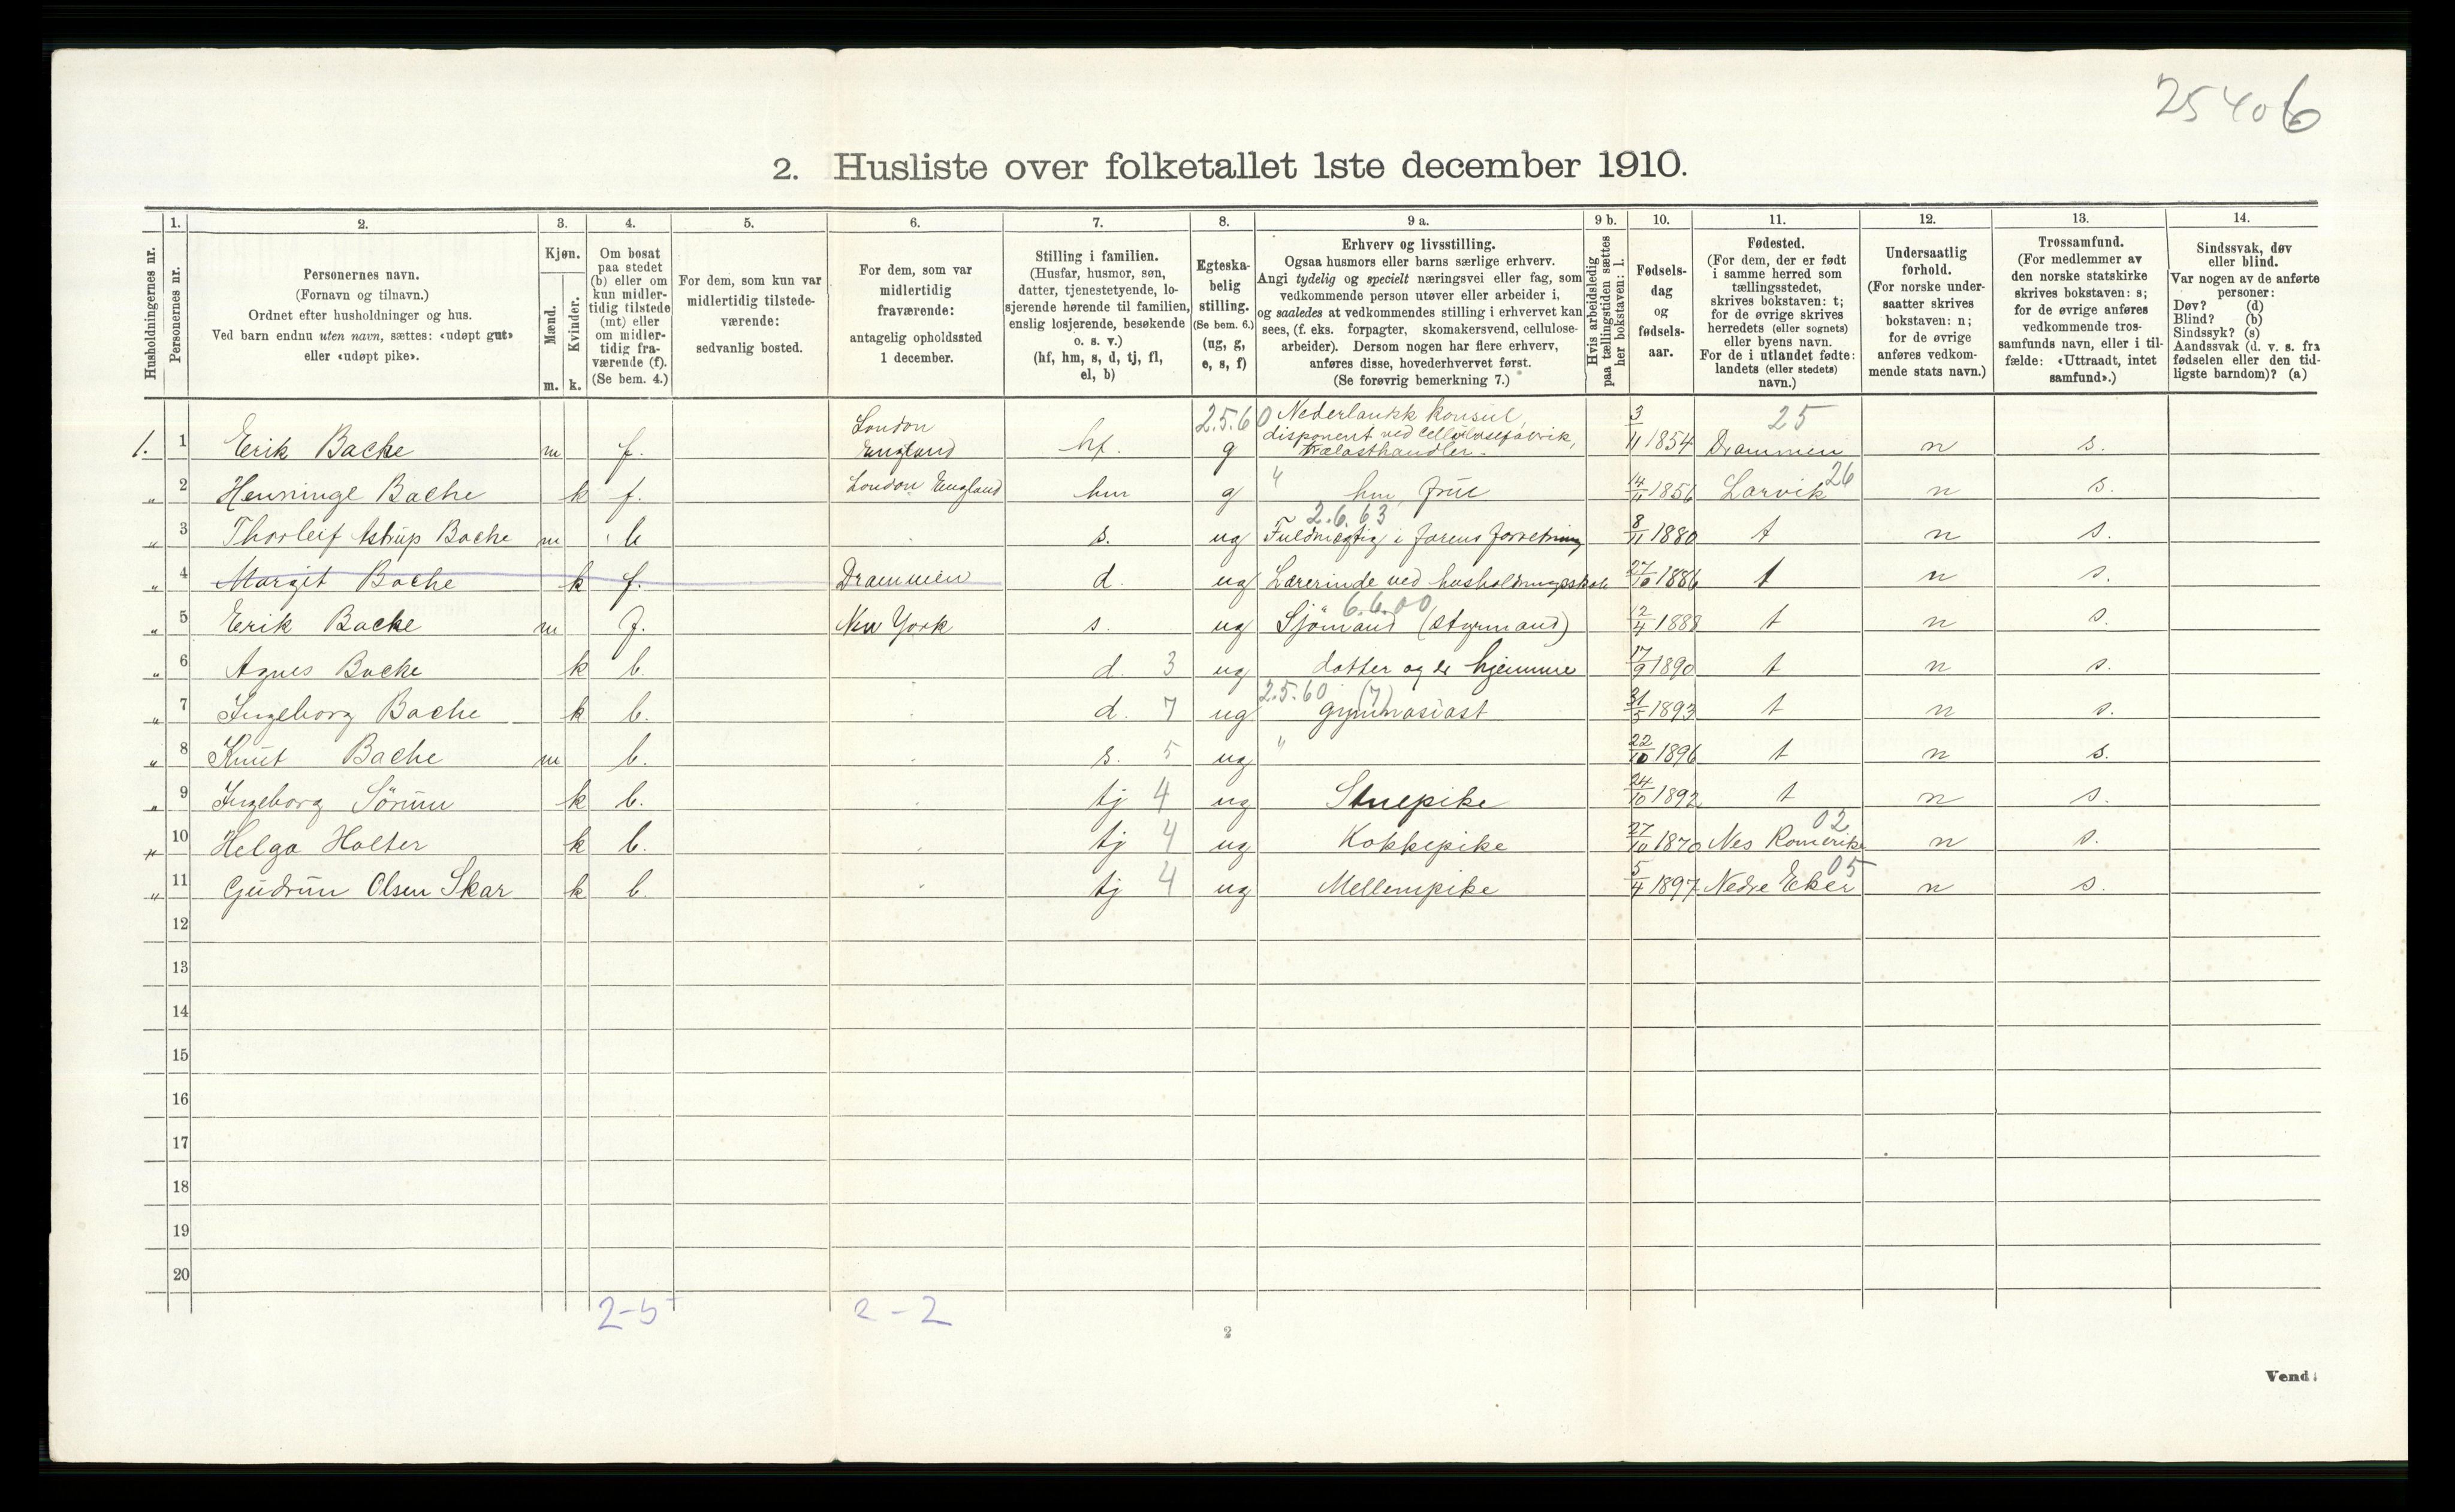 25406
2. Husliste over folketallet 1ste december 1910.
Husholdningernes nr.
1.
Personernes nr.
2.
Personernes navn.
(Fornavn og tilnavn.)
Ordnet efter husholdninger og hus.
Ved barn endnu uten navn, sættes: «udøpt gut»
eller «udøpt pike».
3.
Kjøn.
Mænd.
m.
Kvinder.
k.
4.
Om bosat
paa stedet
(b) eller om
kun midler-
tidig tilstede
(mt) eller
om midler-
tidig fra-
værende (f).
(Se bem. 4.)
5.
For dem, som kun var
midlertidig tilstede-
værende:
sedvanlig bosted.
6.
For dem, som var
midlertidig
fraværende:
antagelig opholdssted
1 december.
7.
Stilling i familien.
(Husfar, husmor, søn,
datter, tjenestetyende, lo-
sjerende hørende til familien,
enslig losjerende, besøkende
o. s. v.)
(hf, hm, s, d, tj, fl,
el, b)
8.
Egteska-
belig
stilling.
(Se bem. 6.)
(ug, g,
e, s, f)
9 a.
Erhverv og livsstilling.
Ogsaa husmors eller barns særlige erhverv.
Angi tydelig og specielt næringsvei eller fag, som
vedkommende person utøver eller arbeider i,
og saaledes at vedkommendes stilling i erhvervet kan
sees, (f. eks. forpagter, skomakersvend, cellulose-
arbeider). Dersom nogen har flere erhverv,
anføres disse, hovederhvervet først.
(Se forøvrig bemerkning 7.)
9 b.
Hvis arbeidsledig
paa tællingstiden sættes
her bokstaven: l.
10.
Fødsels-
dag
og
fødsels-
aar.
11.
Fødested.
(For dem, der er født
i samme herred som
tællingsstedet,
skrives bokstaven: t;
for de øvrige skrives
herredets (eller sognets)
eller byens navn.
For de i utlandet fødte:
landets (eller stedets)
navn.)
12.
Undersaatlig
forhold.
(For norske under-
saatter skrives
bokstaven: n;
for de øvrige
anføres vedkom-
mende stats navn.)
13.
Trossamfund.
(For medlemmer av
den norske statskirke
skrives bokstaven: s;
for de øvrige anføres
vedkommende tros-
samfunds navn, eller i til-
fælde: «Uttraadt, intet
samfund».)
14.
Sindssvak, døv
eller blind.
Var nogen av de anførte
personer:
Døv? (d)
Blind? (b)
Sindssyk? (s)
Aandssvak (d. v. s. fra
fødselen eller den tid-
ligste barndom)? (a)
1. 1 Erik Bache m f. London England hf. g 2.5.60 Nederlandsk konsul, disponent ved Cellulosefabrik, Trælasthandler. 3/11 1854 Drammen 25 n s.
" 2 Henninge Bache k f. London England hm g " hm, frue 14/11 1856 Larvik 26 n s.
" 3 Thorleif Astrup Bache m b s. ug 2.6.63 Fuldmægtig i farens forretning 8/11 1880 t n s.
" 4 Margit Bache k f. Drammen d. ug Lærerinde ved husholdningsskole 27/10 1886 t n s.
" 5 Erik Bache m f. New York s. ug 6.6.00 Sjömand (styrmand) 12/4 1888 t n s.
" 6 Agnes Bache k b. d. 3 ug datter og er hjemme 17/9 1890 t n s.
" 7 Ingeborg Bache k b. d. 7 ug 2.5.60 (7) gymnasiast 31/5 1893 t n s.
" 8 Knut Bache m b. s. 5 ug " 22/10 1896 t n s.
" 9 Ingeborg Sörum k b. tj 4 ug Stuepike 24/10 1892 t n s.
" 10 Helga Holter k b. tj 4 ug Kokkepike 27/10 1870 Nes Romerike 02 n s.
" 11 Gudrun Olsen Skar k b. tj 4 ug Mellempike 5/4 1897 Nedre Eker 05 n s.
12
13
14
15
16
17
18
19
20
2-5 2-2
2
Vend!